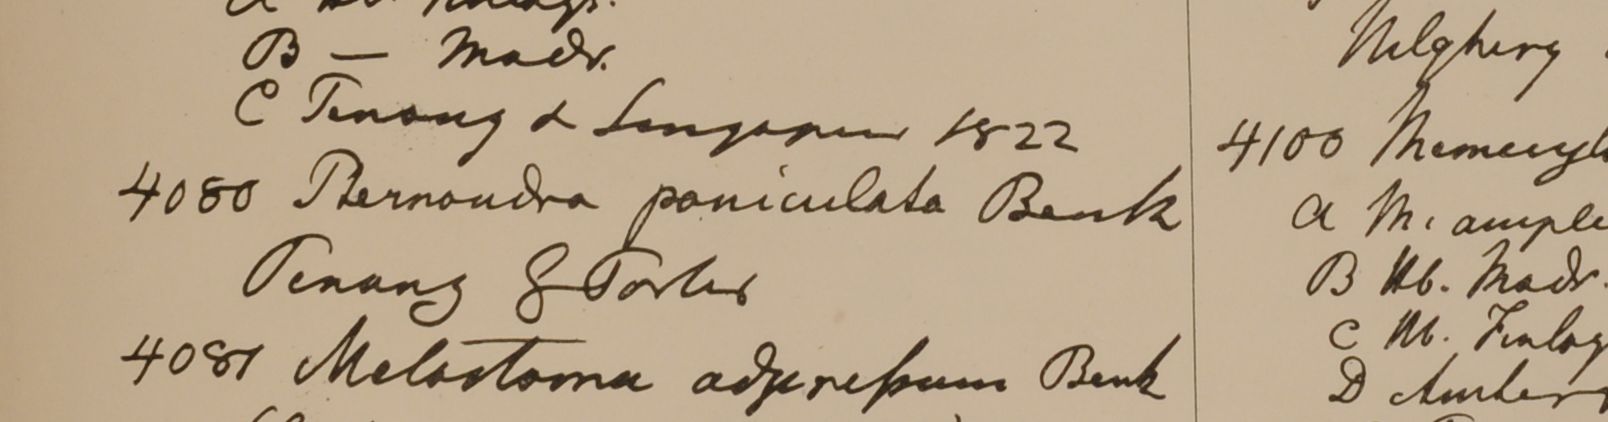 B — Madr.
C Penang & Singapur 1822
4080 Pternandra paniculata Benth
Penang G Porter
4081 Melastoma adpressum Benth
Nilghery
4100 Memecyl
a M. ample
B Hb. Madr.
C Hb. Finlay
D Amherst